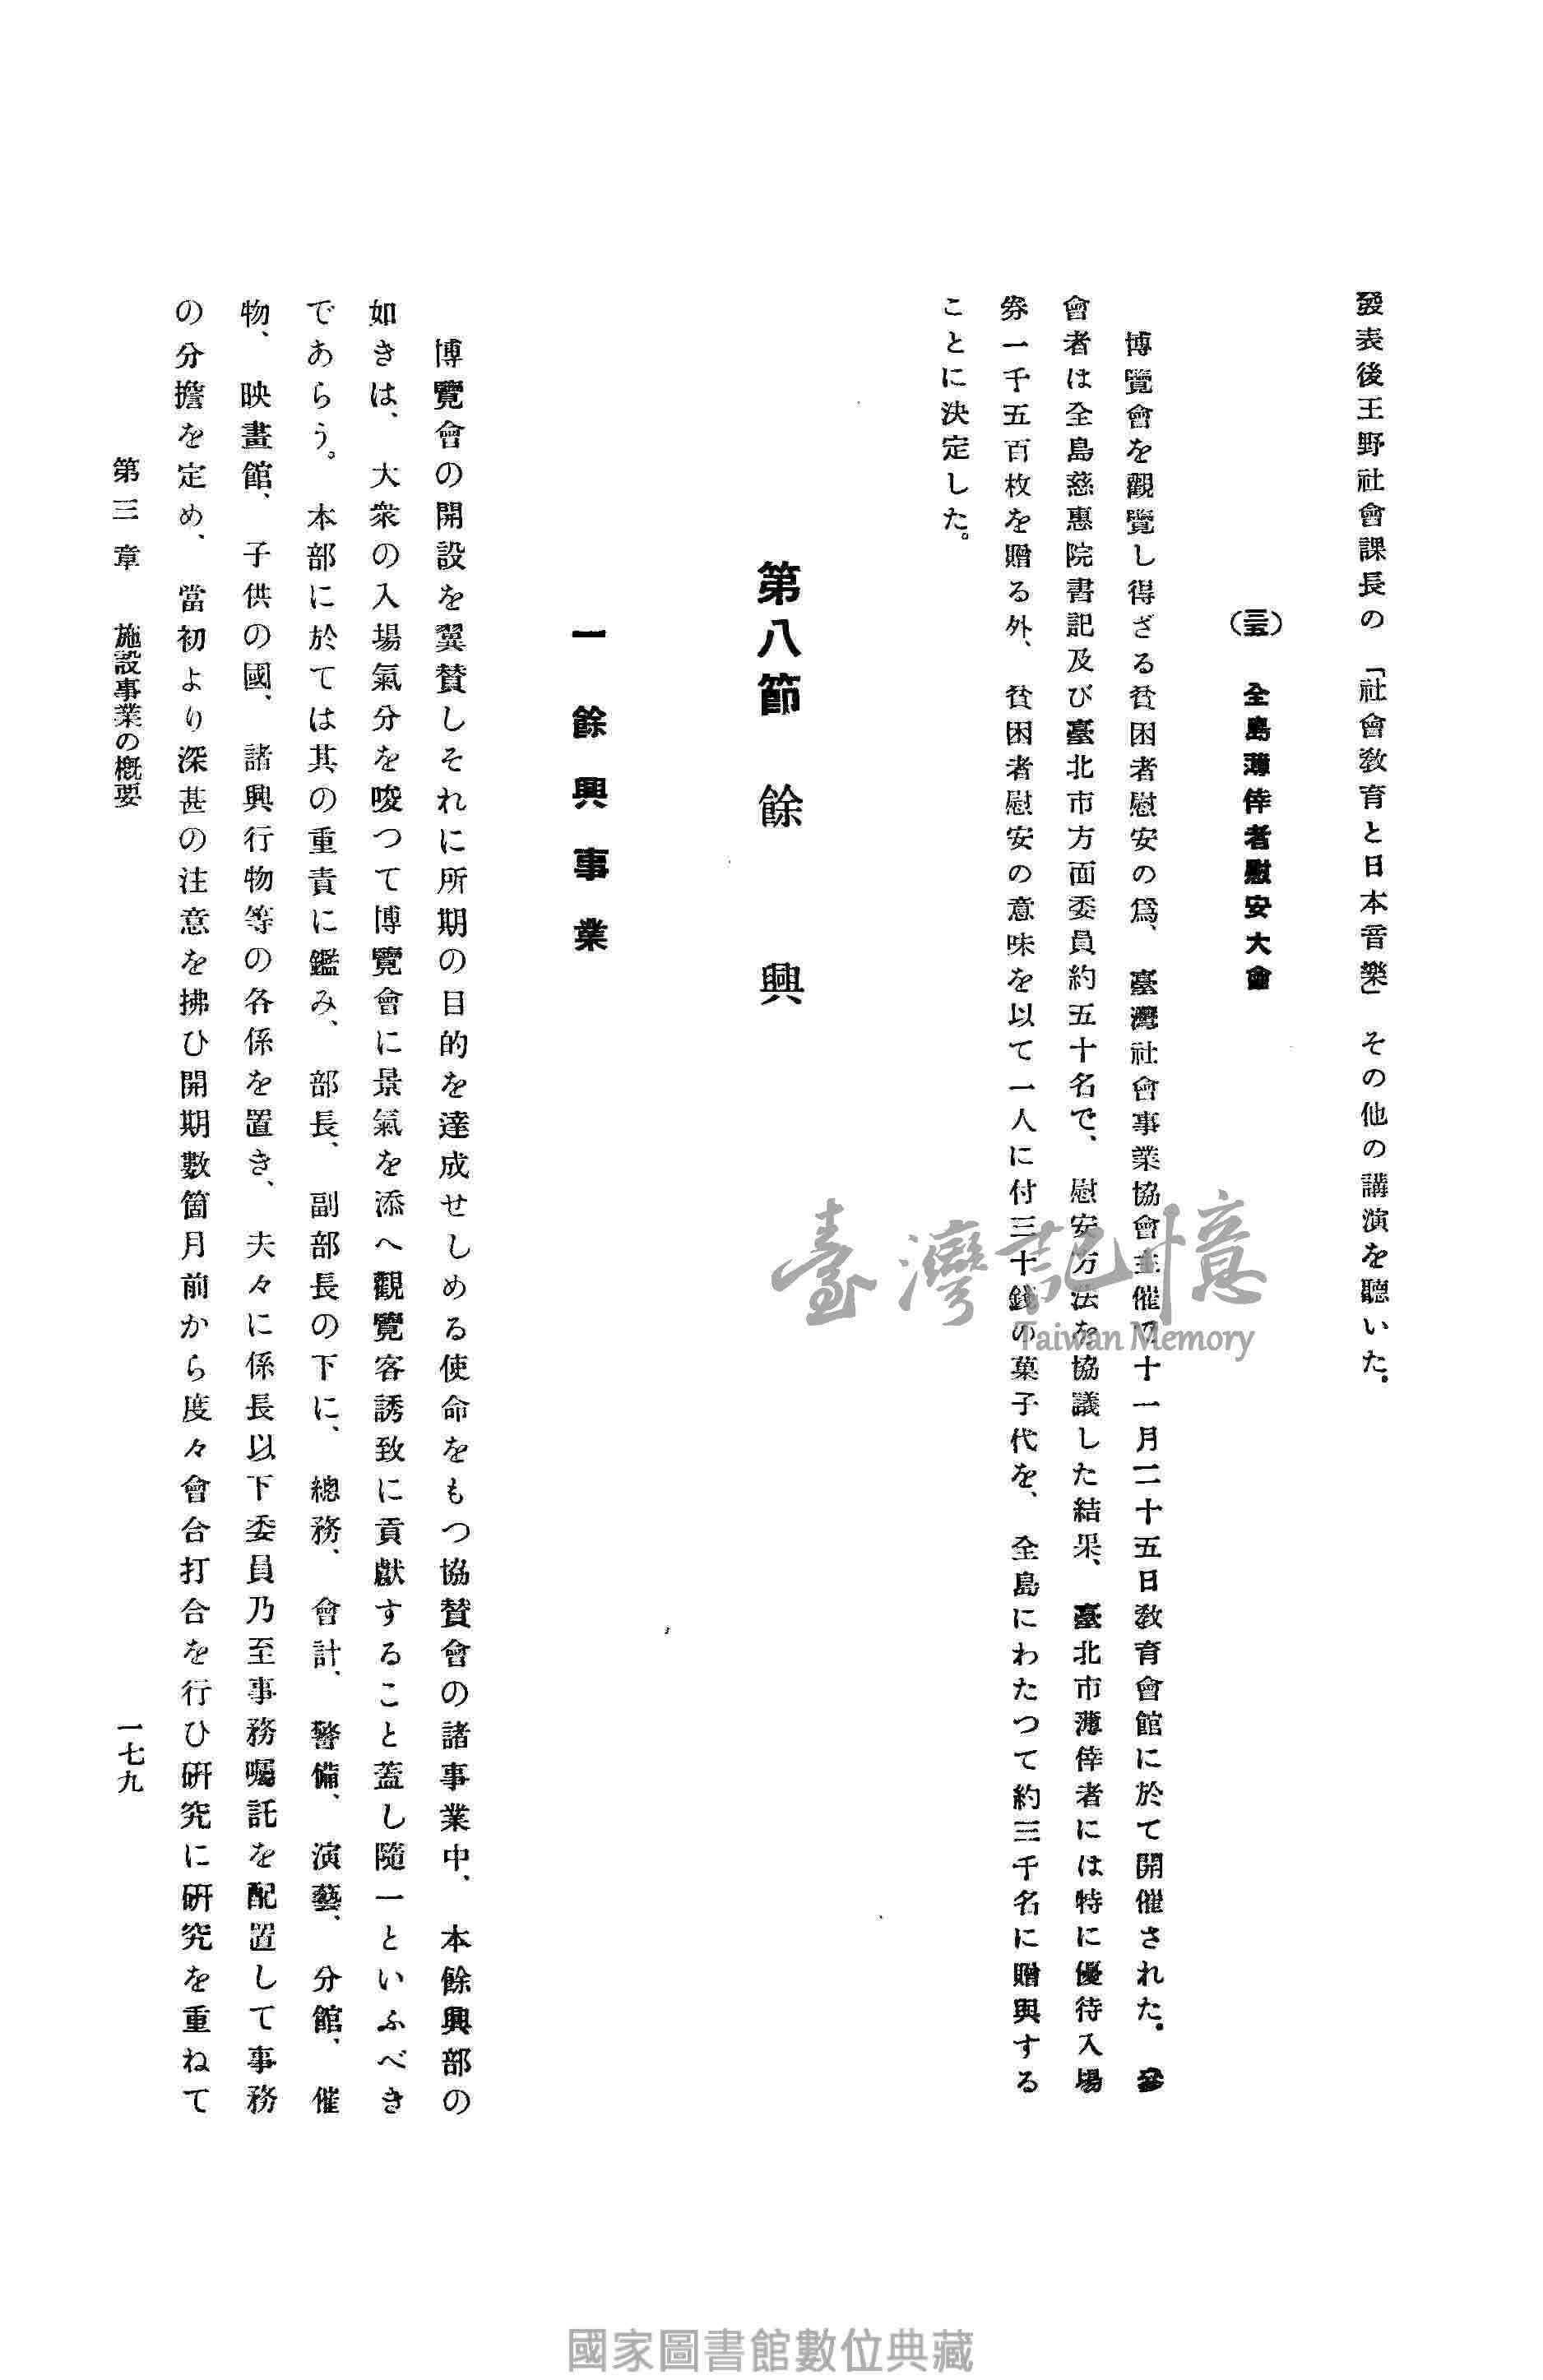 發表後王野社會課長の「社會敎育と日本音樂」その他の講演を聽いた。
全島薄倖者慰安大會
博覽會を觀覽し得ざる貧困者慰安の爲、臺灣社會事業協會主催の十一月二十五日敎育會館に於て開催された。參
會者は全島慈惠院書記及び臺北市方面委員約五十名で、慰安方法を協議した結果、臺北市薄倖者には特に優待入場
券一千五百枚を贈る外、貧困者慰安の意味を以て一人に付三十錢の菓子代を、全島にわたつて約三千名に贈與する
ことに決定した。
第八節 餘興
一 餘興事業
博覽會の開設を翼賛しそれに所期の目的を達成せしめる使命をもつ協賛會の諸事業中、本餘興部の
如きは、大衆の入場氣分を唆つて博覽會に景氣を添へ觀覽客誘致に貢獻すること蓋し隨一といふべき
であらう。本部に於ては其の重責に鑑み、部長、副部長の下に、總務、會計、警備、演藝、分館、催
物、映畫館、子供の國、諸興行物等の各係を置き、夫々に係長以下委員乃至事務囑託を配置して事務
の分擔を定め、當初より深甚の注意を拂ひ開期數箇月前から度々會合打合を行ひ硏究に硏究を重ねて
第三章 施設事業の槪要
一七九
臺灣記憶
Taiwan Memory
國家圖書館數位典藏